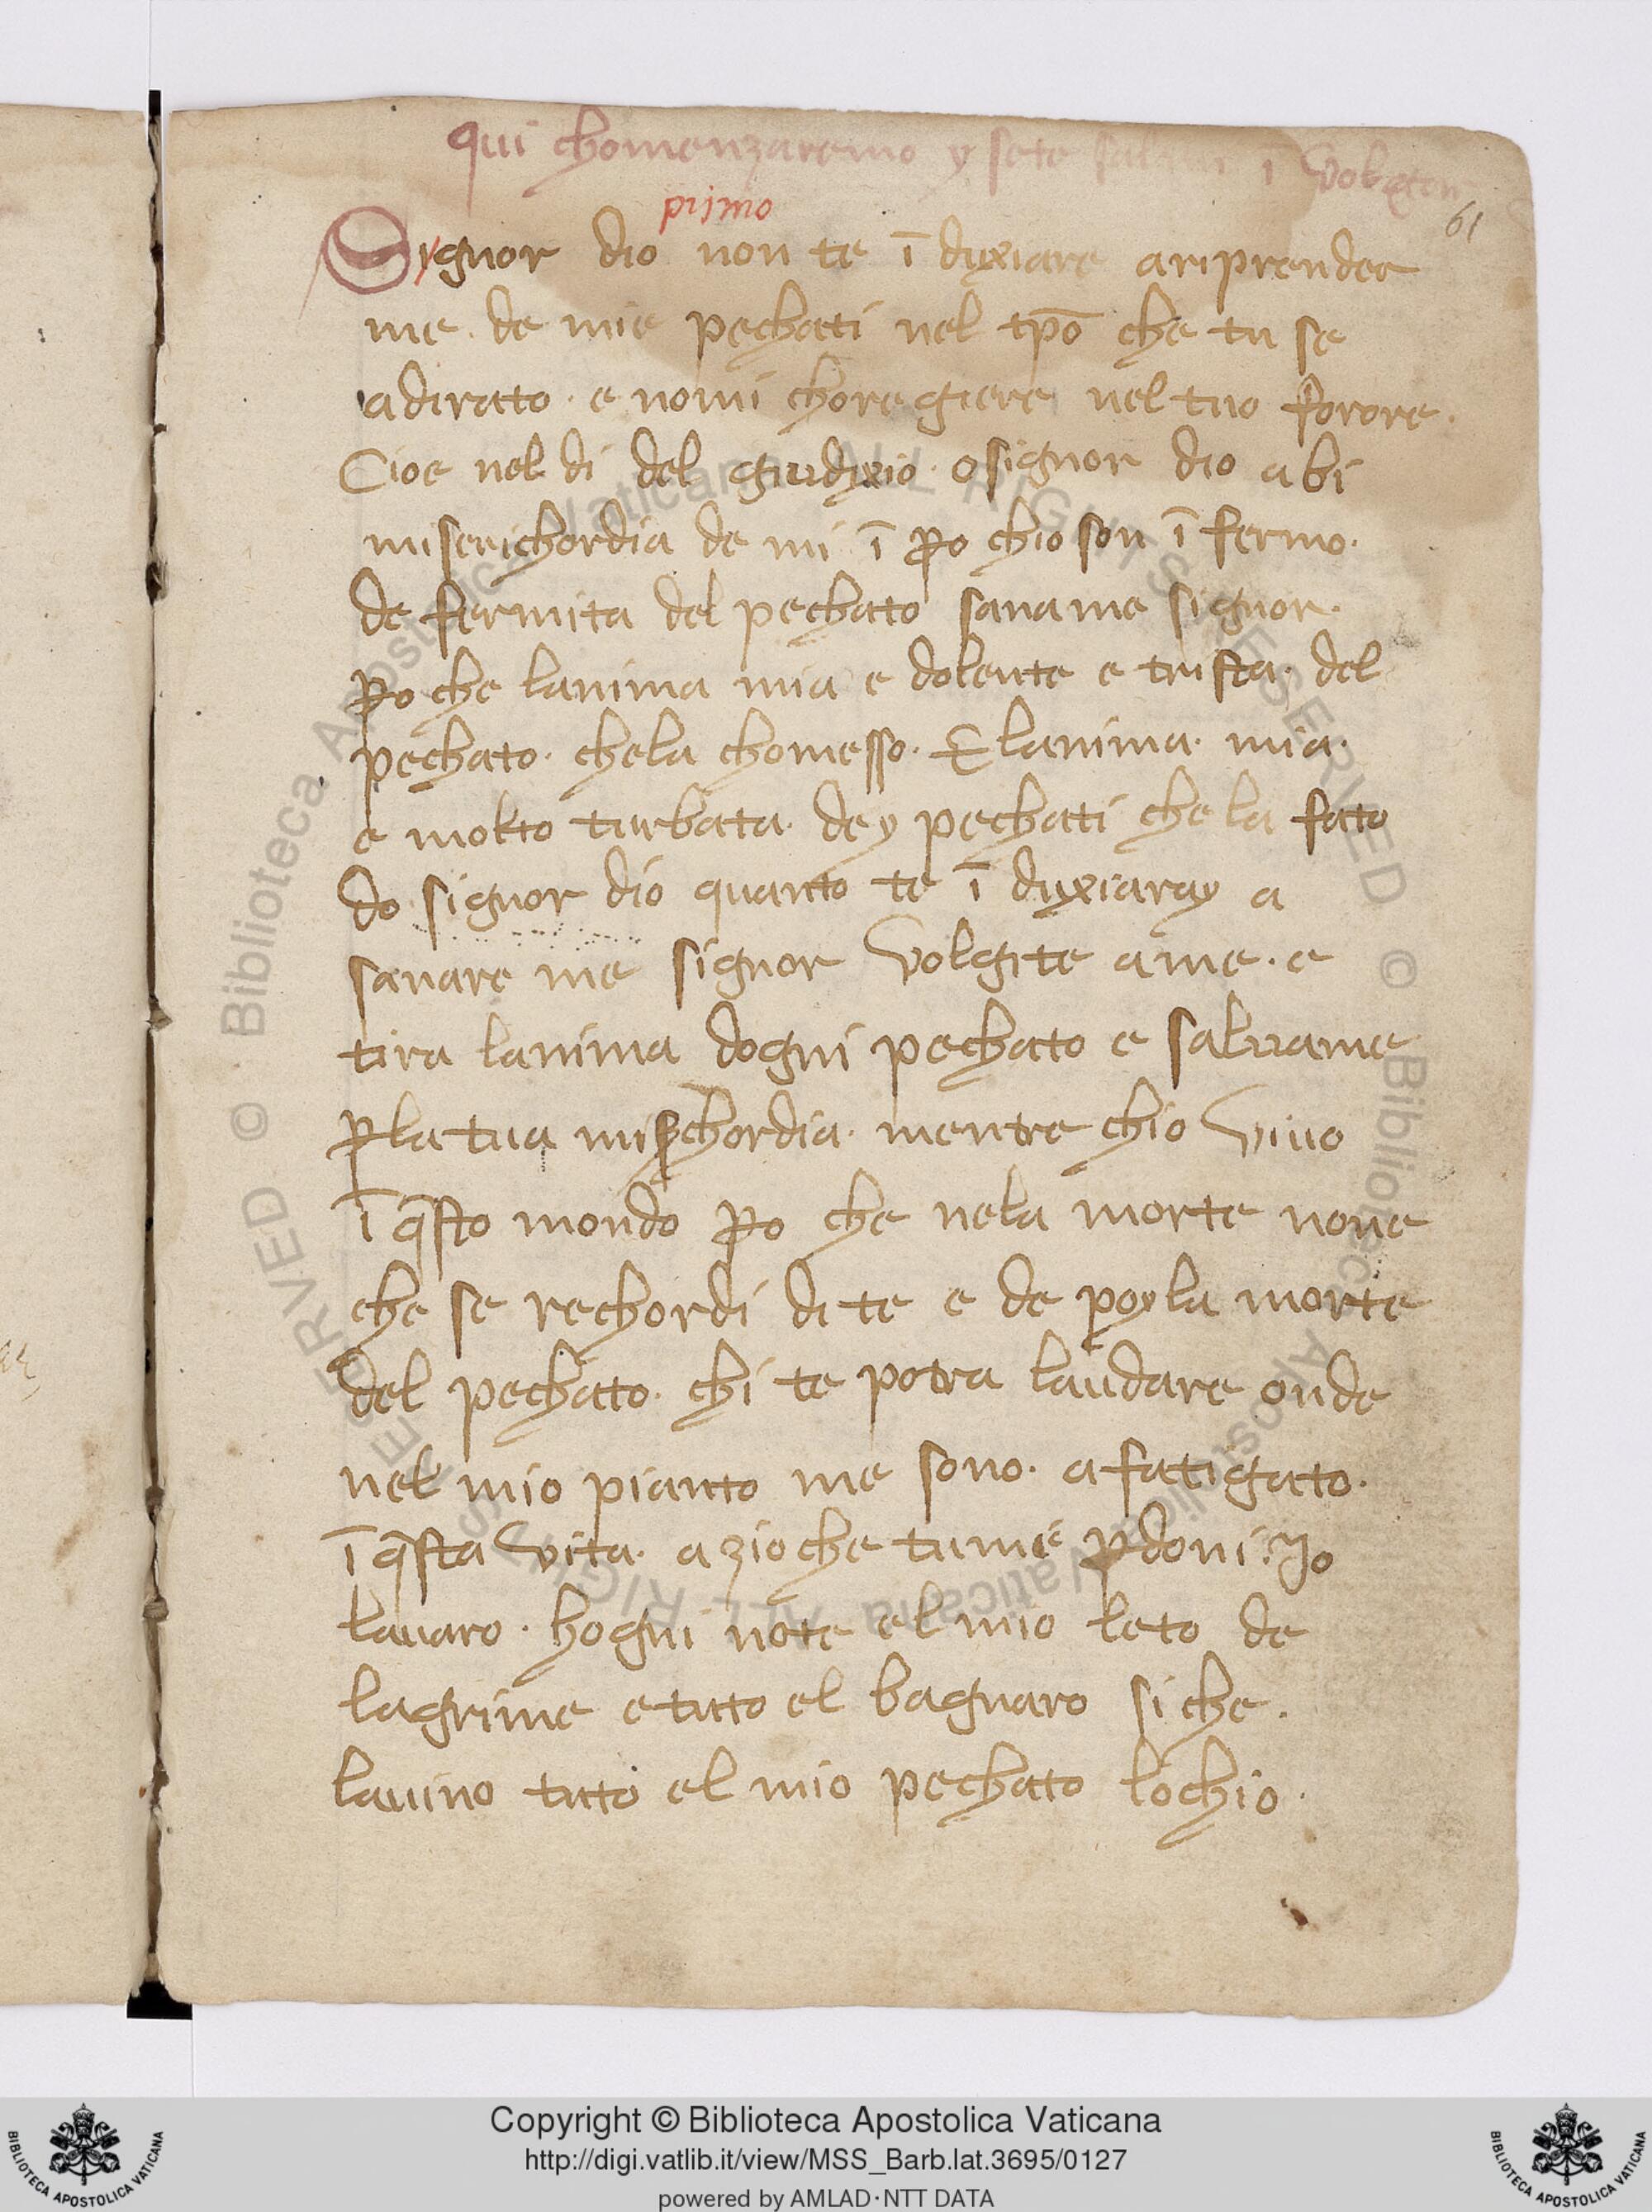 qui chomenzaremo y sete salmi ī volgar
primo
61
Signor dio non te ī duxiare ariprender
me de mie pechati nel tpō che tu se
adirato · e nomi choregiere nel tuo forore ·
Cioe nel di del giudixio · o signor dio abi
miserichordia de mi ī ꝑo chio son ī fermo ·
de fermita del pechato saname signor ·
ꝑo che lanima mia e dolente e trista · del
pechato · chela chomesso · E lanima · mia ·
e molto turbata · dey pechati che la fato
do signor dio quanto te ī duxiaray a
sanare me signor volgite ame · e
tira lanima dogni pechato e saluame
ꝑla tua misꝑchordia · mentre chio viuo
ī q̄sto mondo ꝑo che nela morte none
che se rechordi di te e de poy la morte
del pechato · chi te potra laudare onde
nel mio pianto me sono · afatigato ·
ī q̄sta vita · azioche tume ꝑdoni · Jo
lauaro · hogni note el mio leto de
lagrime e tuto el bagnaro si che ·
lauino tuto el mio pechato lochio ·
© Biblioteca Apostolica Vaticana ALL RIGHTS RESERVED
© Biblioteca Apostolica Vaticana ALL RIGHTS RESERVED
BIBLIOTECA APOSTOLICA VATICANA
Copyright © Biblioteca Apostolica Vaticana
http://digi.vatlib.it/view/MSS_Barb.lat.3695/0127
powered by AMLAD·NTT DATA
BIBLIOTECA APOSTOLICA VATICANA